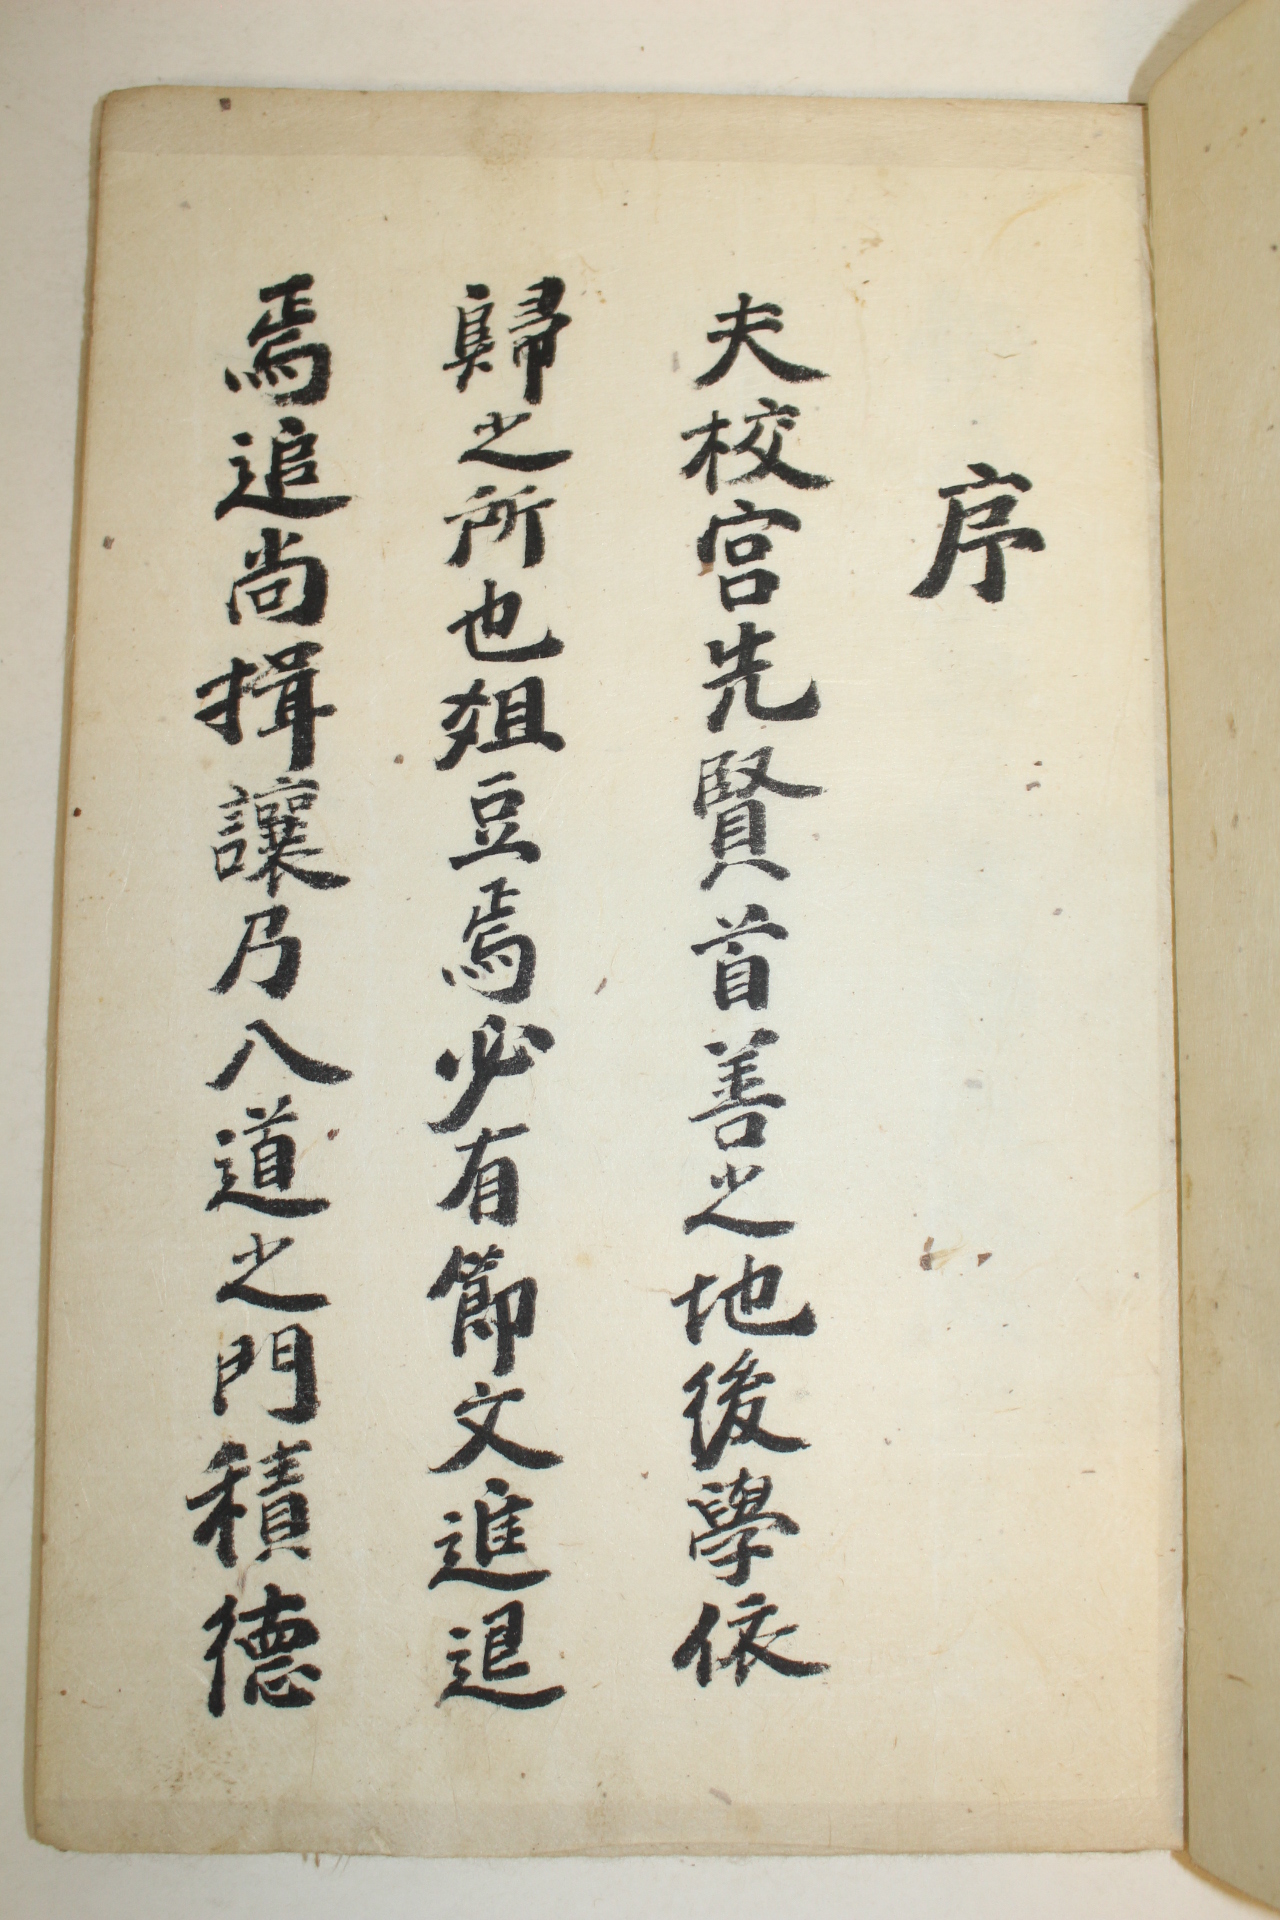 序
夫校宮先賢首善之地後學依
歸之所也俎豆焉必有節文進退
焉追尚揖讓乃八道之門積德